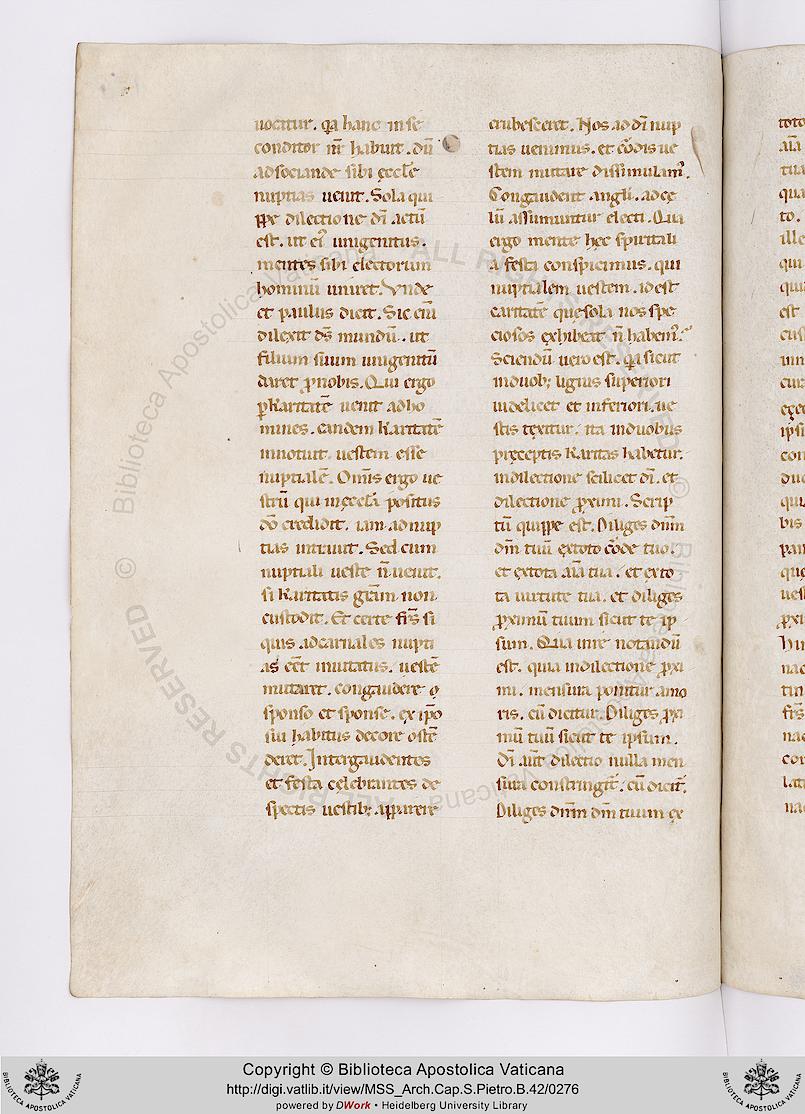 uocitur. q̄a hanc in se
conditor nr̄ habuit. dū
ad sociandę sibi ęcclę̄
nuptias uenit. Sola qui
ppe dilectione dī actū
est. ut ei' unigenitus.
mentes sibi electorum
hominū uniret. Vnde
et paulus dicit. Sic eni
dilexit ds̄ mundū. ut
filium suum unigenitū
daret ꝓ nobis. Qui ergo
ꝑ Karitatē uenit ad ho
mines. eandem Karitatē
innotuit uestem esse
nuptialē. Om̄is ergo ue
strū qui in ęccla positus
dō credidit. iam ad nup
tias intrauit. Sed cum
nuptiali ueste n̄ uenit.
si Karitatis gr̄am non
custodit. Et certe frs̄ si
quis ad carnales nupti
as eēt inuitatus. uestē
mutaret. congaudere
sponso et sponse. ex ip̄o
sui habitus decore ostē
deret. Inter gaudentes
et festa celebrantes de
spectis uestib; apparere
erubesceret. Nos ad dī nup
tias uenimus. et cordis ue
stem mutare dissimulam'.
Congaudent angli. ad cę
lū assumuntur electi. Qua
ergo mente hęc spiritali
a festa conspicimus. qui
nuptialem uestem. id est
caritatē quę sola nos spe
ciosos exhibeat n̄ habem'.
Sciendū uero est. q̄a sicut
in duob; lignis superiori
uidelicet et inferiori. ue
stis texitur. ita in duobus
pręceptis Karitas habetur.
in dilectione scilicet dī. et
dilectione ꝓximi. Scrip
tū quippe est. Diliges dn̄m
dm̄ tuū ex toto corde tuo.
et ex tota aīa tua. et ex to
ta uirtute tua. et diliges
ꝓximū tuum sicut te ip
sum. Qua in re notandū
est. quia in dilectione ꝓxi
mi. mensura ponitur amo
ris. cū dicitur. Diliges ꝓxi
mū tuū sicut te ipsum.
Dī aūt dilectio nulla men
sura constringit'. cū dicit'.
Diliges dn̄m dm̄ tuum ex
toto
aīa
tua
qua
to.
ille
qui
quia
est
cus
inn
cur
exet
ipsi
con
duo
qui
bis
pau
que
uest
ꝓxi
nac
tur
frs̄
nac
cor
lati
nac
© Biblioteca Apostolica Vaticana ALL RIGHTS RESERVED
Copyright © Biblioteca Apostolica Vaticana
http://digi.vatlib.it/view/MSS_Arch.Cap.S.Pietro.B.42/0276
powered by DWork • Heidelberg University Library
BIBLIOTECA APOSTOLICA VATICANA
BIBLIOTECA APOSTOLICA VATICANA